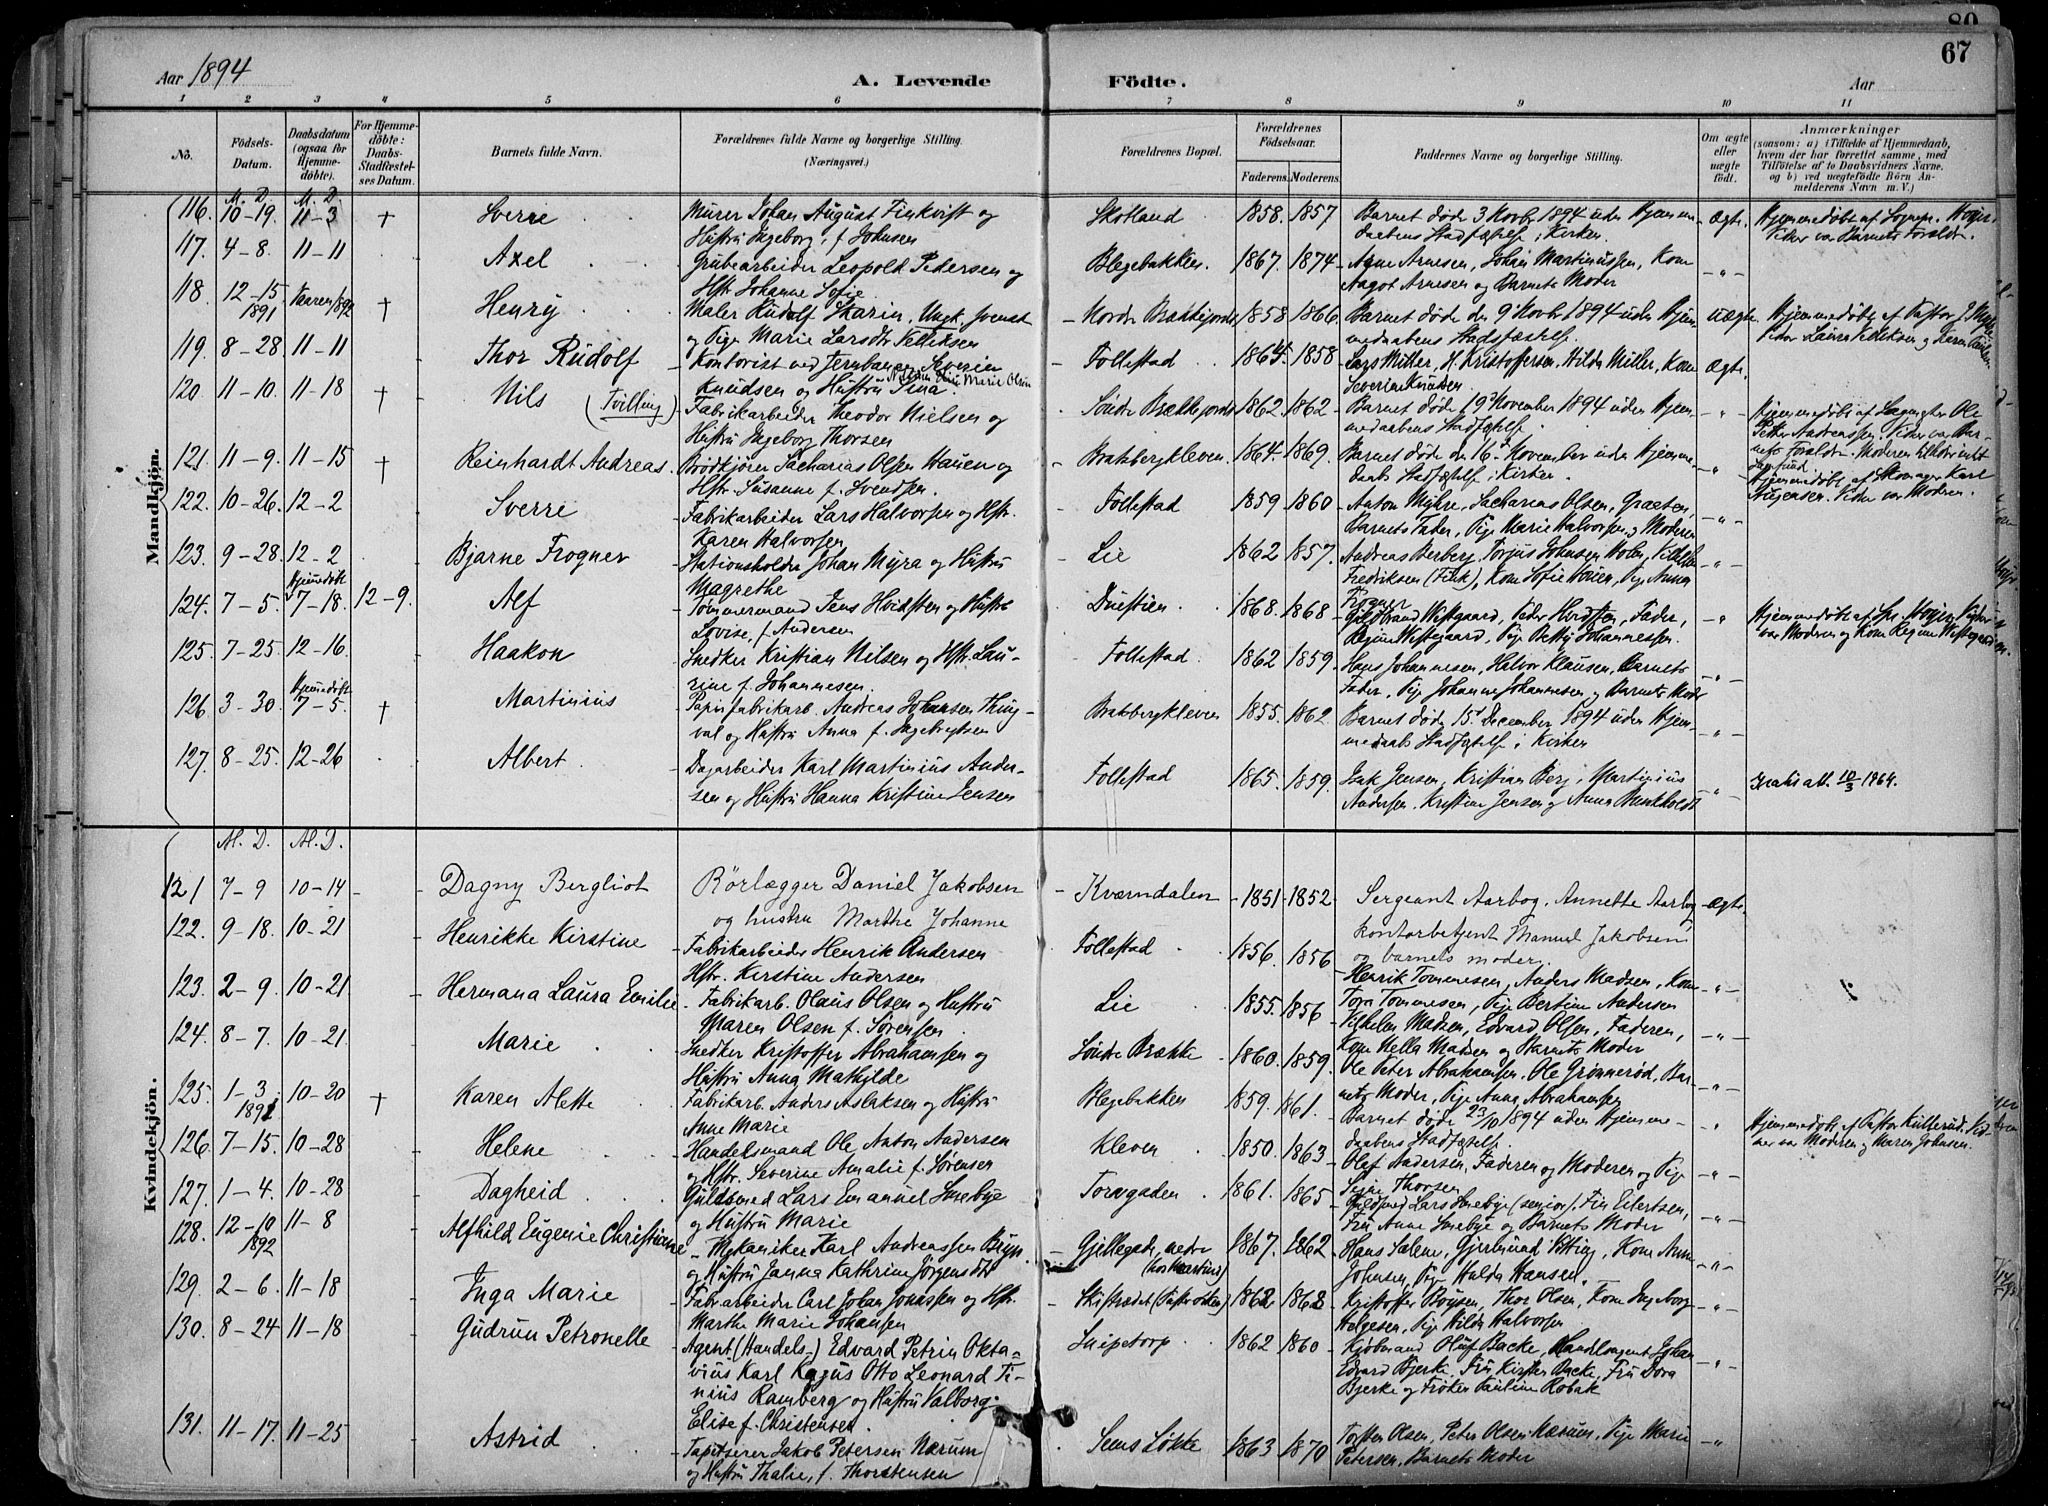 80
67
Aar 1894
A. Levende
Födte.
Aar
1 2 3 4 5 6 7 8 9 10 11
No.
Födsels-Datum.
Daabsdatum (ogsaa for Hjemme-döbte).
For Hjemme-döbte: Daabs-Stadfæstel-ses Datum.
Barnets fulde Navn.
Forældrenes fulde Navne og borgerlige Stilling.
(Næringsvei.)
Forældrenes Bopæl.
Forældrenes Födselsaar.
Faderens. Moderens.
Faddernes Navne og borgerlige Stilling.
Om ægte eller uægte födt.
Anmærkninger
(saasom: a) i Tilfælde af Hjemmedaab, hvem der har forrettet samme, med Tilföielse af to Daabsvidners Navne. og b) ved uægtefödte Börn An-melderens Navn m. V.)
Mandkjön.
M. D. M. D.
116. 10-19. 11-3 † Sverre Murer Johan August Finkvist og
Hustru Ingeborg, f. Johnsen
Skotland 1858. 1857 Barnet døde 3 Novbr 1894 uden Hjemme-
daabens Stadfæstelse i Kirken. Ægte.
117. 4-8. 11-11 Axel Grubearbeider Leopold Pedersen og
Hstr. Johanne Sofie
Blegebakken. 1867. 1874 Arne Arnesen, Johan Martinussen, Kone
Aagot Arnesen og Barnets Moder -"-
118. 12-15 1891 Vaaren 1892 † Henry Maler Rudolf Skarin, Ungk. svensk
og Pige Marie Larsdtr
Nordre Brækkejordet 1858 1866 Barnet døde den 9 Novbr 1894 uden Hjem-
medaabens Stadfæstelse. Uægte.
119. 8-28. 11-11 Thor Rudolf Kontorist ved Jernbanen Severin
Knudsen og Hustru Tina
Follestad 1864. 1858 Lars Müller, H. Kristoffersen, Hilda Müller, Kone
Severine Knudsen Ægte.
120. 11-10. 11-18 † Nils (Tvilling) Fabrikarbeider Theodor Nielsen og
Hustru Ingeborg Thorsen
Søndre Brækkejordet 1862 1862 Barnet døde 19 November 1894 uden Hjem-
medaabens Stadfæstelse. -"-
Hjemmedøbt af Ole
Petter Andreassen. Vidner var Bar-
nets Forældre.
121 11-9. 11-15 † Reinhardt Andreas. Brødkjører Zacharias Olsen Hauen og
Hstr. Susanne f. Svendsen.
Brakbergkleven 1864. 1869. Barnet døde den 16 November uden Hjemme-
daabs Stadfæstelse i Kirken. -"-
Hjemmedøbt af Skomager Karl
Vidner var Moderen.
122. 10-26. 12-2 Sverre Fabrikarbeider Lars Halvorsen og Hstr.
Karen Halvorsen
Follestad 1859 1860 Anton Myhre, Zacharias Olsen, Graaten,
Barnets Fader, Pige Marie Halvorsen og Moderen -"-
123. 9-28. 12-2 Bjarne Frogner Stationsholder Johan Myra og Hustru
Magrethe
Lie 1862 1857. Andreas Berberg, Torjus Johnsen Holm, Vilhelm
Fredriksen (Fisk), Kone Sofie Hauen, Pige Anna -"-
124. 7-5. Hjemmedøbt 7-18. 12-9. Alf Tømmermand Jens Hvidsten og Hustru
Lovise, f. Andersen
Duestien 1868. 1868 Hildbrand Westgaard, Peder Hvidsten, Fader,
Regine Westgaard, Pige Betty Johannessen. -"-
125. 7-25. 12-16. Haakon Snedker Kristian Nilsen og Hstr. Lau-
rine f. Johannesen.
Follestad. 1862 1859. Hans Johannesen, Halvor Klausen, Barnets
Fader, Pige Johanne Johannesen og Barnets Moder -"-
126. 3-30. Hjemmedøbt 7-5. † Martinius Papirfabrikarb. Andreas Johansen Thing-
val og Hustru Anna f. Ingebrigtsen
Brakbergkleven 1855. 1862. Barnet døde 15 December 1894 uden Hjem-
medaabs Stadfæstelse i Kirken -"-
127. 8-25. 12-26 Albert Dagarbeider Karl Martinius Ander-
sen og Hustru Hanna Kristine Jensen
Follestad 1865. 1859. Isak Jensen, Kristian Berg, Martinius
Andersen, Kristine Jensen og Anna -"- Gratis att. 10/3 1964.
Kvindekjön.
M. D. M. D.
121 7-9 10-14 Dagny Bergliot Rörlægger Daniel Jakobsen
og hustru Marthe Johanne
Kværndalen 1851 1852 Sergeant Aarbog, Annette Aarbog
kontorbetjent Manuel Jakobsen
og barnets moder. Ægte.
122. 9-18. 10-21 Henrikke Kirstine Fabrikarbeider Henrik Andersen
Hstr. Kirstine Andersen
Follestad 1856. 1856 Henrik Tommesen, Anders Madsen, Kone
Tora Tommesen, Pige Bertine Andersen -"-
123. 2-9. 10-21 Hermana Laura Emilie Fabrikarb. Olaus Olsen og Hustru
Maren Olsen f. Sørensen
Lie 1855. 1856 Vilhelm Madsen, Edvard Olsen, Faderen,
Kone Hella Madsen og Barnets Moder -"-
124. 8-7. 10-21 Marie Snedker Kristoffer Abrahamsen og
Hustru Anna Mathilde
Søndre Brække 1860. 1859. Ole Peter Abrahamsen, Ole Grønnerød, Bar-
nets Moder, Pige Anna Abrahamsen -"-
125. 1-3 1892 10-20 † Karen Alette Fabrikarb. Anders Aslaksen og Hustru
Anne Marie
Blegebakken 1859. 1861. Barnet døde 23/10 1894 uden Hjemme-
daabens Stadfæstelse. -"-
Hjemmedøbt af Pastor Kullerud. Vid-
ner var Moderen og Maren Johnsen.
126. 7-15. 10-28 Helene Handelsmand Ole Anton Andersen
og Hstr. Severine Amalie f. Sørensen
Kleven 1850. 1863 Olaf Andersen, Faderen og Moderen og Pige
Thorsen -"-
127. 1-4. 10-28 Dagheid Guldsmed Lars Emanuel Snebye
og Hustru Marie
Torvgaden 1861. 1865 Guldsmed Lars Snebye (senior), Fru Eilertsen,
Fru Anne Snebye og Barnets Moder -"-
128. 12-10 1892 11-8 Alfhild Eugenie Christiane Mekaniker Karl Andreassen Bryn
og Hustru Janna Kathrine Jørgensdtr
Gjellegade, nedre 1867. 1862 Hans Salene, Kone Anne
Johnsen, Pige Hulda Hansen. -"-
129. 2-6. 11-18 Inga Marie Fabrarbeider Carl Johan Jonassen og Hstr.
Marthe Marie Johansen
1862 1862 Kristoffer Boysen, Thor Olsen, Kone Ingeborg
Helgesen, Pige Hilda Halvorsen -"-
130. 8-24 11-18 Gudrun Petronelle Agent (Handels-) Edvard Petrin Okta-
vius Karl Kagus Otto Leonard Ti-
nius Ramberg og Hustru Valborg
Elise f. Christensen.
Snipetorp 1862 1860 Kjøbmand Oluf Backe, Handelsagent Johan
Edvard Bjerke, Fru Kirsten Backe, Fru Dora
Bjerke og Frøken Pauline Robak -"-
131. 11-17. 11-25 Astrid Tapetserer Jakob Petersen Næsum
og Hustru Thalie, f. Thorstensen
Sems Løkke 1863 1870 Torsten Olsen, Peter Olsen Næsum, Pige Marie
Petersen, Barnets Moder -"-